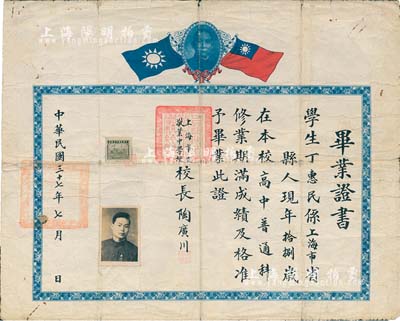 畢業證書
學生丁惠民係上海市省
縣人現年拾捌歲
在本校高中普通科
修業期滿成績及格准
予畢業此證
上海市私立
敬業中學校
校長陶廣川
中華民國三十七年七月 日
上海陽明拍賣